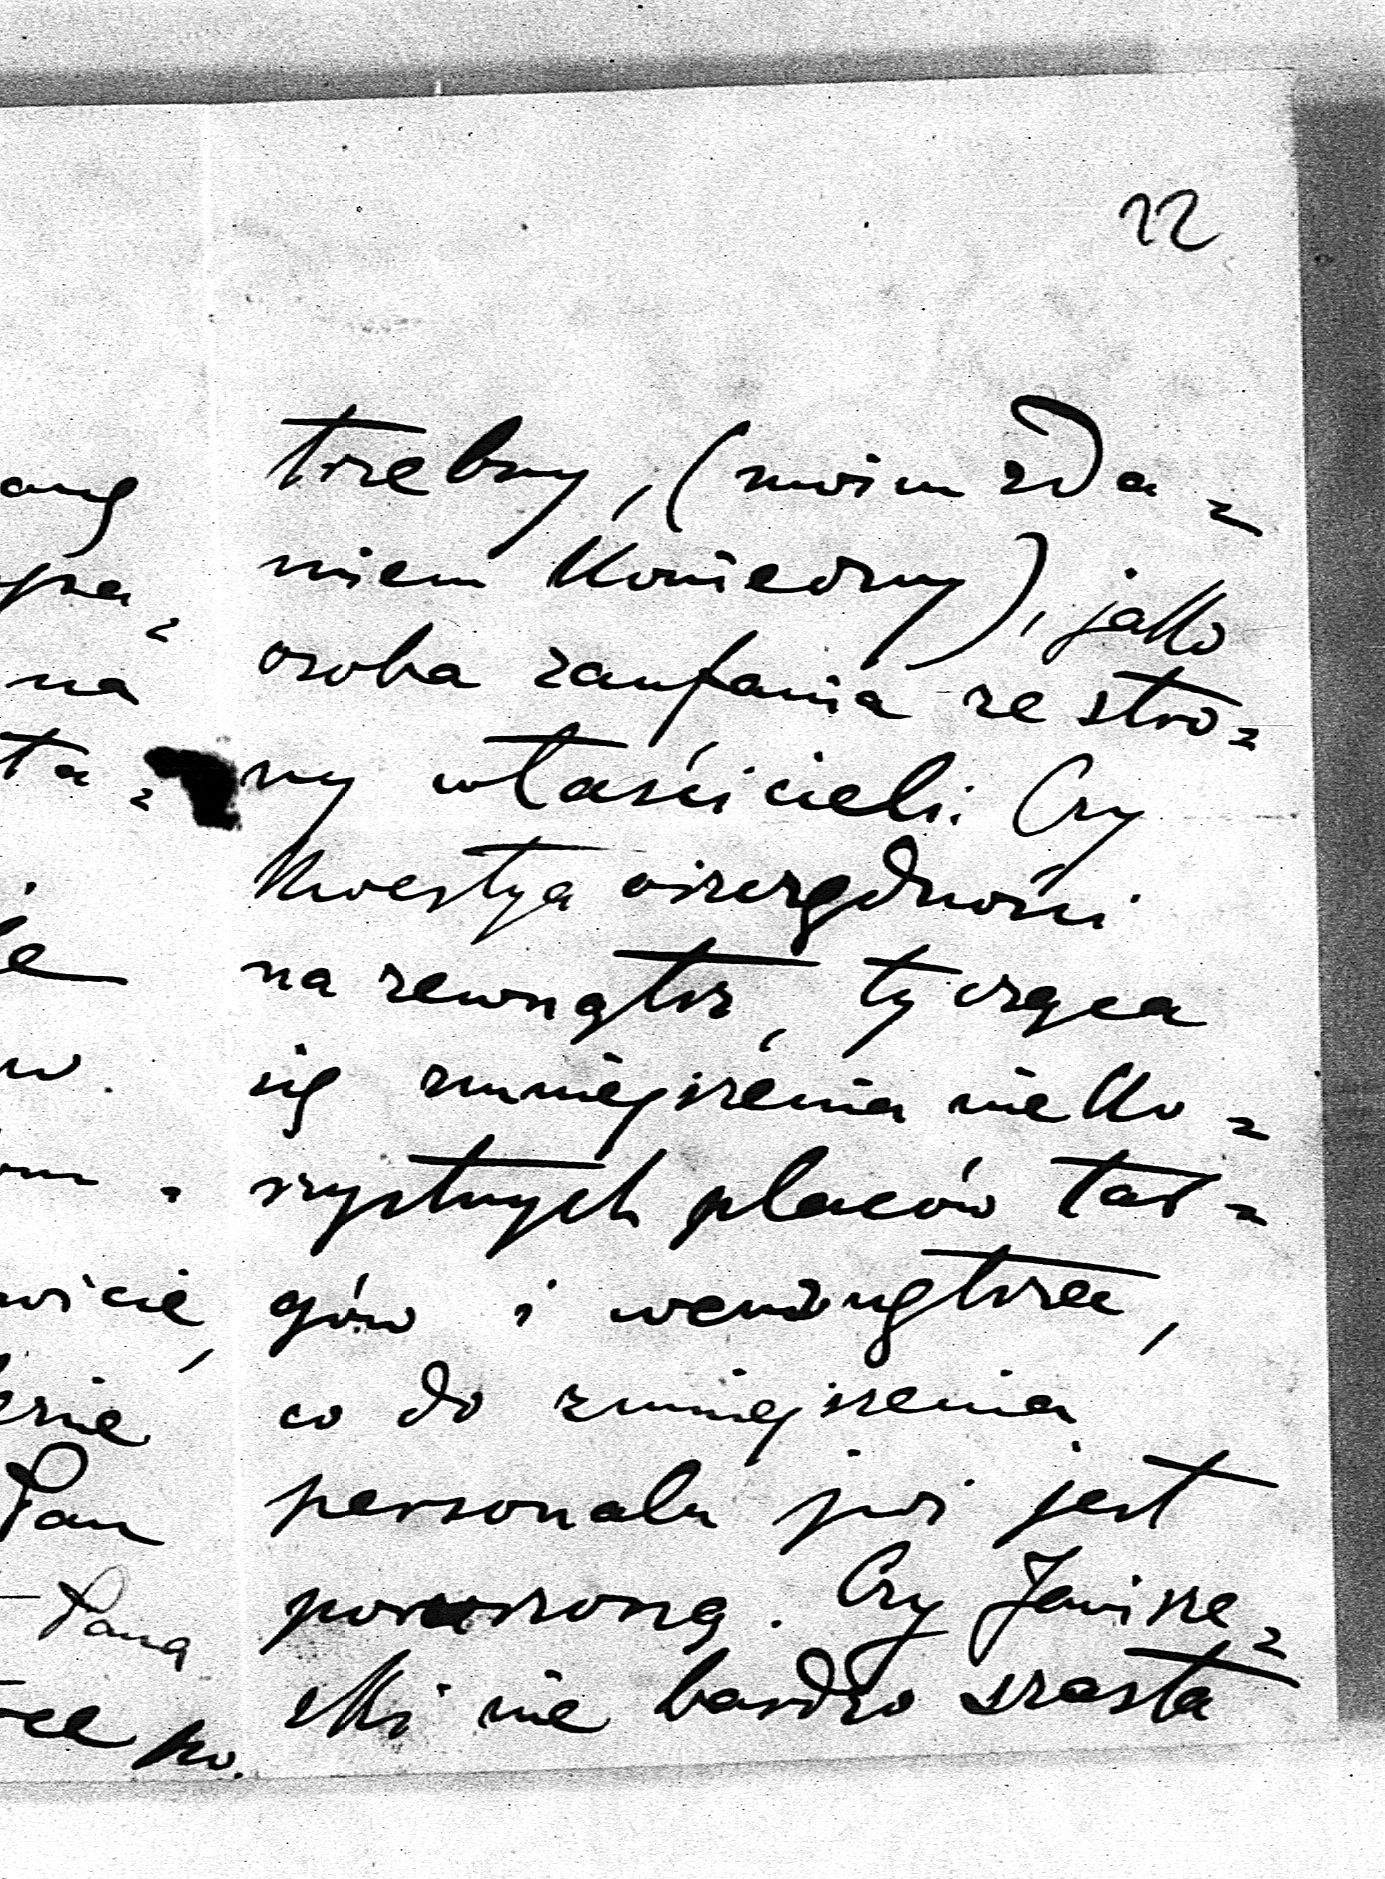 22
trzebny, (moim zda=
niem konieczny), jako
osoba zaufania ze stro=
ny właścicieli. Czy
kwestya oszczędności
na zewnątrz, tycząca
się zmniejszenia nieko=
rzystnych placów tar=
gów i wewnątrza,
co do zmniejszenia
personalu już jest
poruszoną. Czy Janisze=
ski nie bardzo szasta
ang
na
ta=
le
w.
wicie,
Pan
Pana
po.